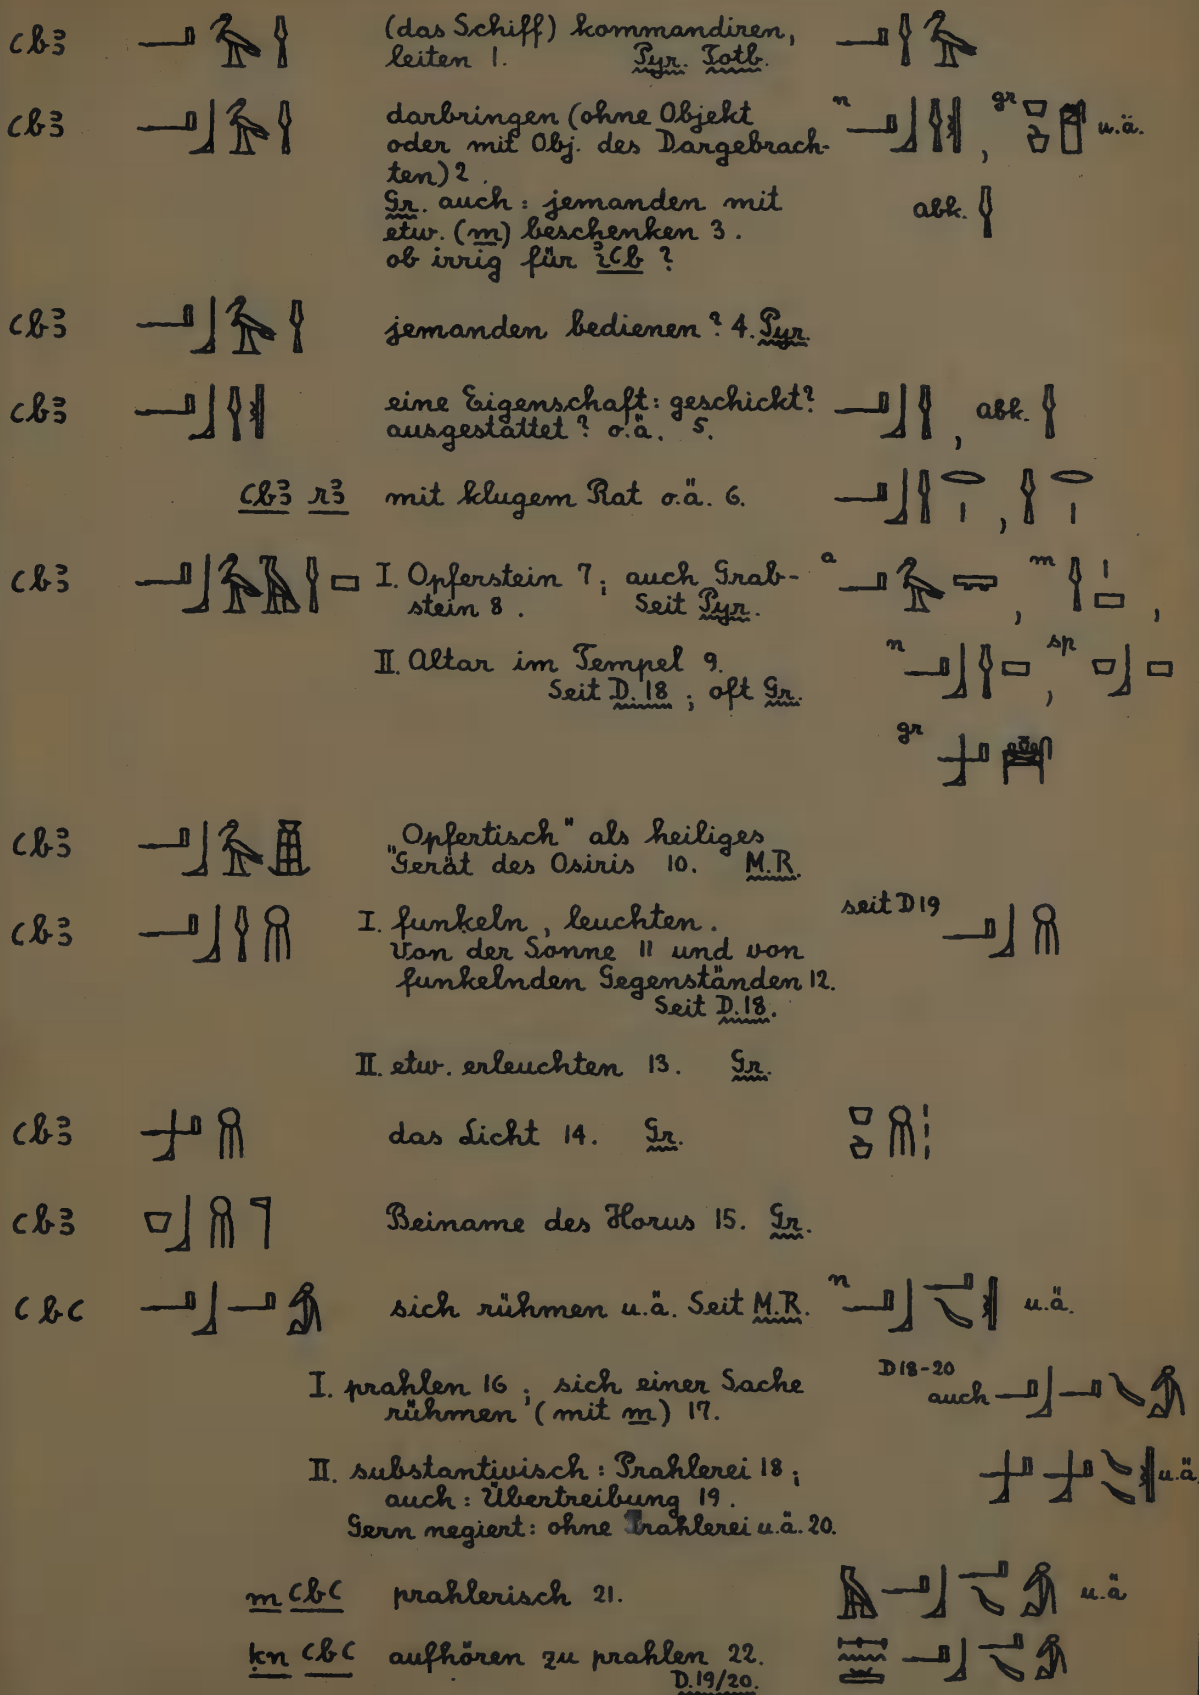 ꜥbꜣ (das Schiff) kommandiren,
leiten 1. Pyr. Totb.
ꜥbꜣ darbringen (ohne Objekt n gr u.ä.
oder mit Obj. des Dargebrach-
ten) 2.
Gr. auch: jemanden mit abk.
etw. (m) beschenken 3.
ob irrig für iꜥb ?
ꜥbꜣ jemanden bedienen? 4. Pyr.
ꜥbꜣ eine Eigenschaft: geschickt? , abk.
ausgestattet? o.ä. 5.
ꜥbꜣ rꜣ mit klugem Rat o.ä. 6.
ꜥbꜣ I. Opferstein 7; auch Grab- a , m ,
stein 8. Seit Pyr.
II. Altar im Tempel 9. n , sp
Seit D.18; oft Gr.
gr
ꜥbꜣ „Opfertisch" als heiliges
Gerät des Osiris 10. M.R.
ꜥbꜣ I. funkeln, leuchten. seit D19
Von der Sonne 11 und von
funkelnden Gegenständen 12.
Seit D.18.
II. etw. erleuchten 13. Gr.
ꜥbꜣ das Licht 14. Gr.
ꜥbꜣ Beiname des Horus 15. Gr.
ꜥbꜥ sich rühmen u.ä. Seit M.R. n u.ä.
I. prahlen 16; sich einer Sache D18-20
rühmen (mit m) 17. auch
II. substantivisch: Prahlerei 18; u.ä
auch: Übertreibung 19.
Gern negiert: ohne Prahlerei u.ä. 20.
m ꜥbꜥ prahlerisch 21. u.ä
ḳn ꜥbꜥ aufhören zu prahlen 22.
D.19/20.